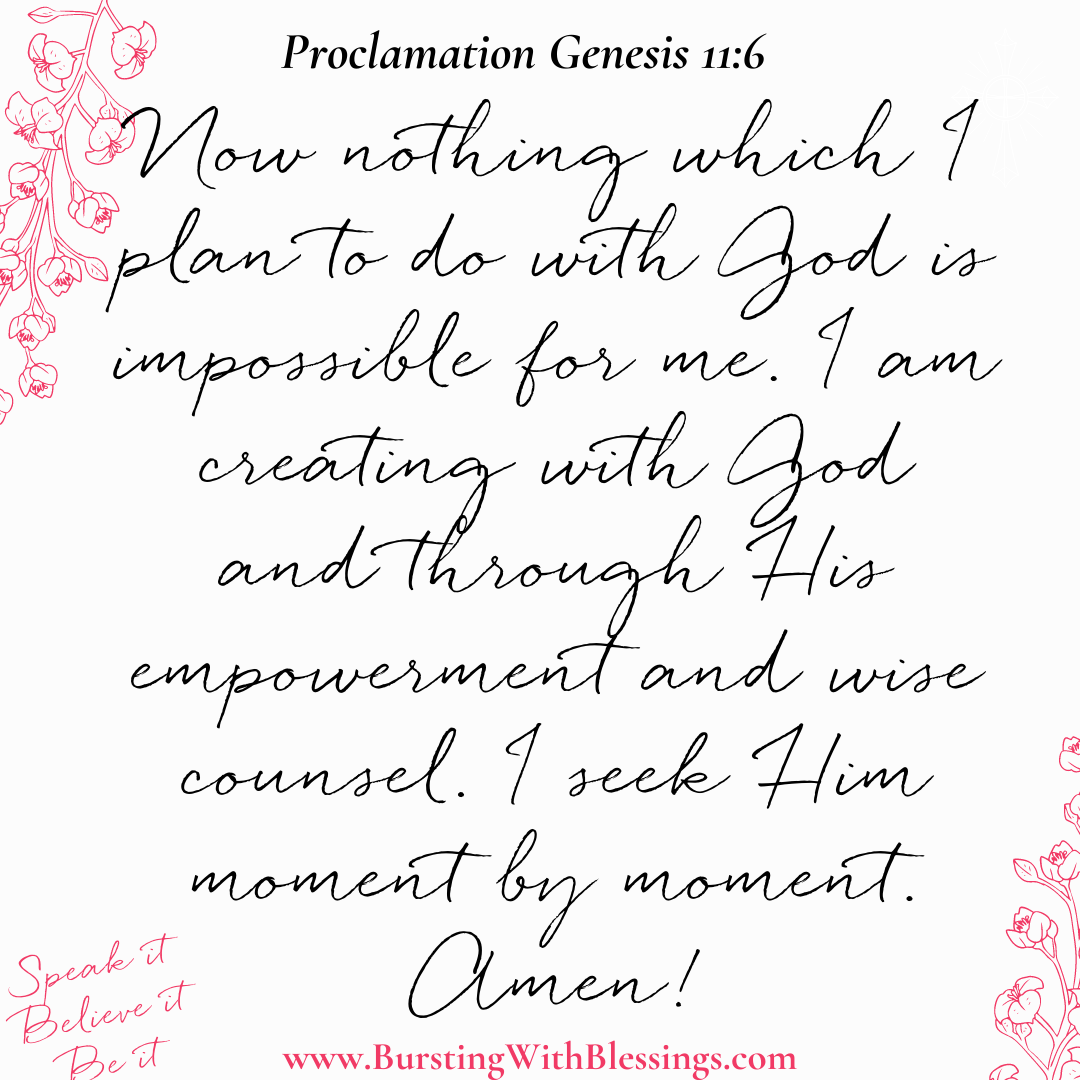 Proclamation Genesis 11:6
Now nothing which I
plan to do with God is
impossible for me. I am
creating with God
and through His
empowerment and wise
counsel. I seek Him
moment by moment.
Amen!
Speak it
Believe it
Be it
www.BurstingWithBlessings.com